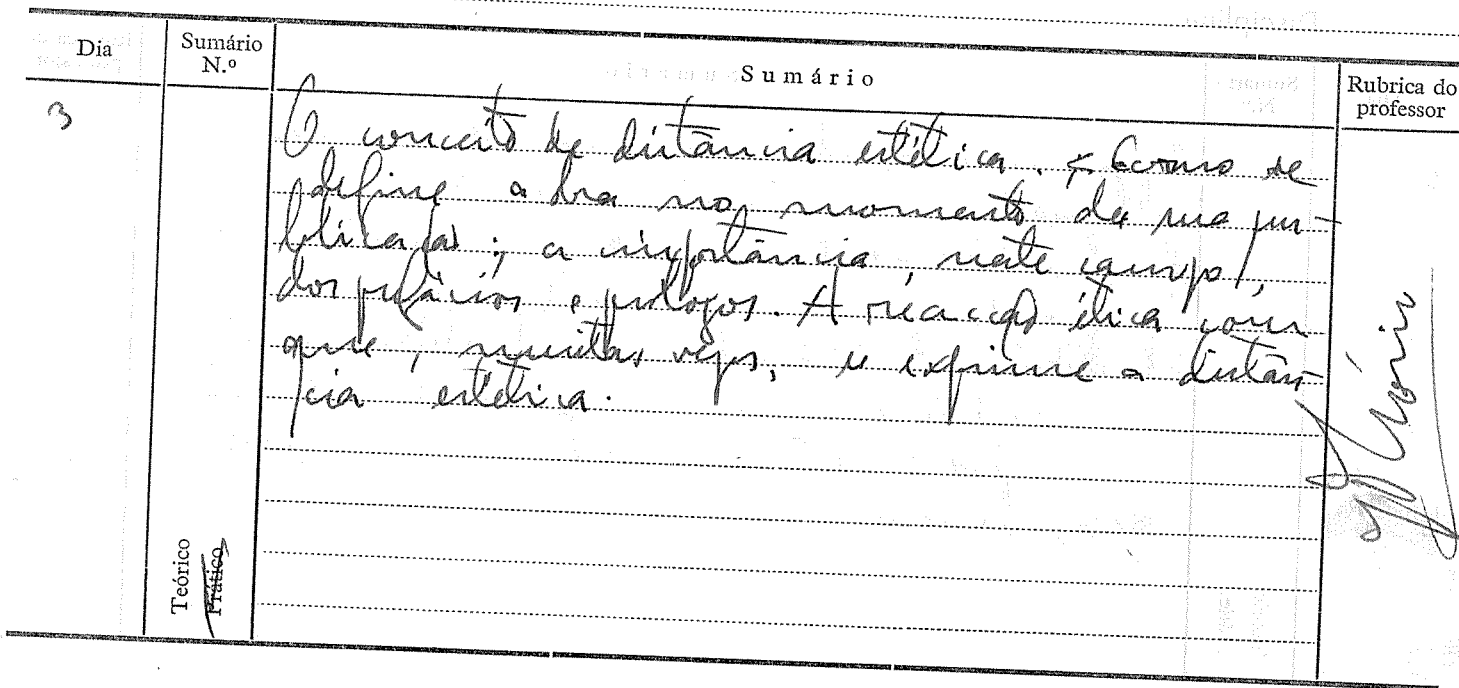 Dia
Sumário
N.º
Sumário
Rubrica do
professor
3
O conceito de distância estética. Como se
define a obra no momento da sua pu-
blicação; a importância, neste campo,
dos prefácios e prólogos. A reacção ética com
que, muitas vezes, se exprime a distân-
cia estética.
Teórico
Prático